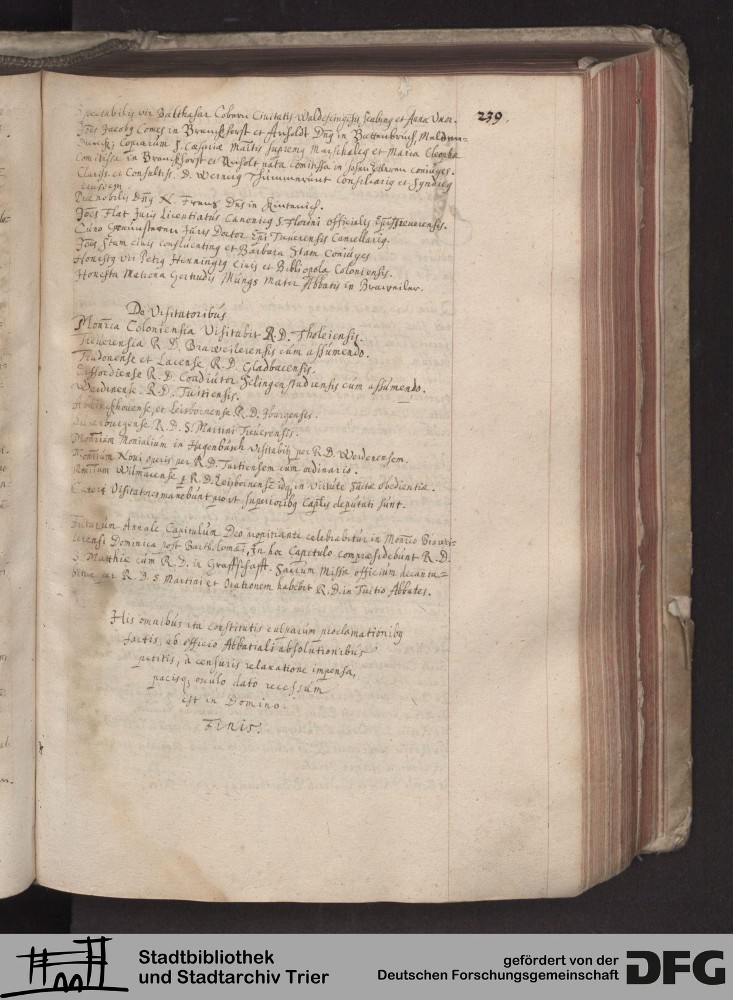 Spectabilis vir Balthasar Coburn Civitatis Waldesingensis Scabinus et Anna Uxor.
239.
Joes Jacobus Comes in Brunckhorst et Anholdt Dnus in Battenbruch,
Copiarum S. Caesariae Maitis supremus Marschalcus et Maria Cleopha
Comitissa in Bronckhorst et Anholt nata comitissa in coniuges.
Clariss. et Consultiss. D. Wernerus Thummermut Consiliarius et Syndicus
eiusdem
Praenobilis Dnus N. Frentz Dns in Kintenich.
Joes Flat Juris Licentiatus Canonicus S. Florini officialis Epi Treuerensis.
Cuno Juris Doctor Epi Treuerensis Cancellarius.
Joes Stam civis confluentinus et Barbara Stam Coniuges
Honestus vir Petrus Henningus Civis et Bibliopola Coloniensis.
Honesta Matrona Gertrudis Mungs Mater Abbatis in Braweiler.
De Visitatoribus
Monria Coloniensia Visitabit R.D. Tholeiensis.
Treuerensia R.D. Braweilerensis cum assumendo.
Trudonense et Lacense R.D. Gladbacensis.
R.D. Coadiutor Selingenstadiensis cum assumendo.
Werdinense R.D. Tuitiensis.
et Leisbornense R.D. Iburgensis.
R.D. S. Martini Treuerensis.
Monrium Monialium in Hagenbusch visitabitur per R.D. Werdenensem.
Monrium Noui operis per R.D. Tuitiensem cum ordinario.
Monrium Wilmariense per R.D. Leisbornensem idque in virtute sactae obedientiae.
Caeteri Visitatores manebunt prout superioribus Caplis deputati sunt.
Futurum Annale Capitulum Deo propitiante celebrabitur in Monrio Brawei-
lerensi Dominica post Bartholomaei, In hoc Capitulo compraesidebunt R.D.
S. Matthiae cum R.D. in Graffschafft. Sacrum Missae officium decanta-
bitur per R.D. S Martini et Orationem habebit R.D. in Tuitio Abbates.
His omnibus ita constitutis culparum proclamationibus
factis, ab officio Abbatiali absolutionibus
petitis, à censuris relaxatione impensa,
pacisque osculo dato recessum
est in Domino.
Finis.
Stadtbibliothek
und Stadtarchiv Trier
gefördert von der
Deutschen Forschungsgemeinschaft
DFG